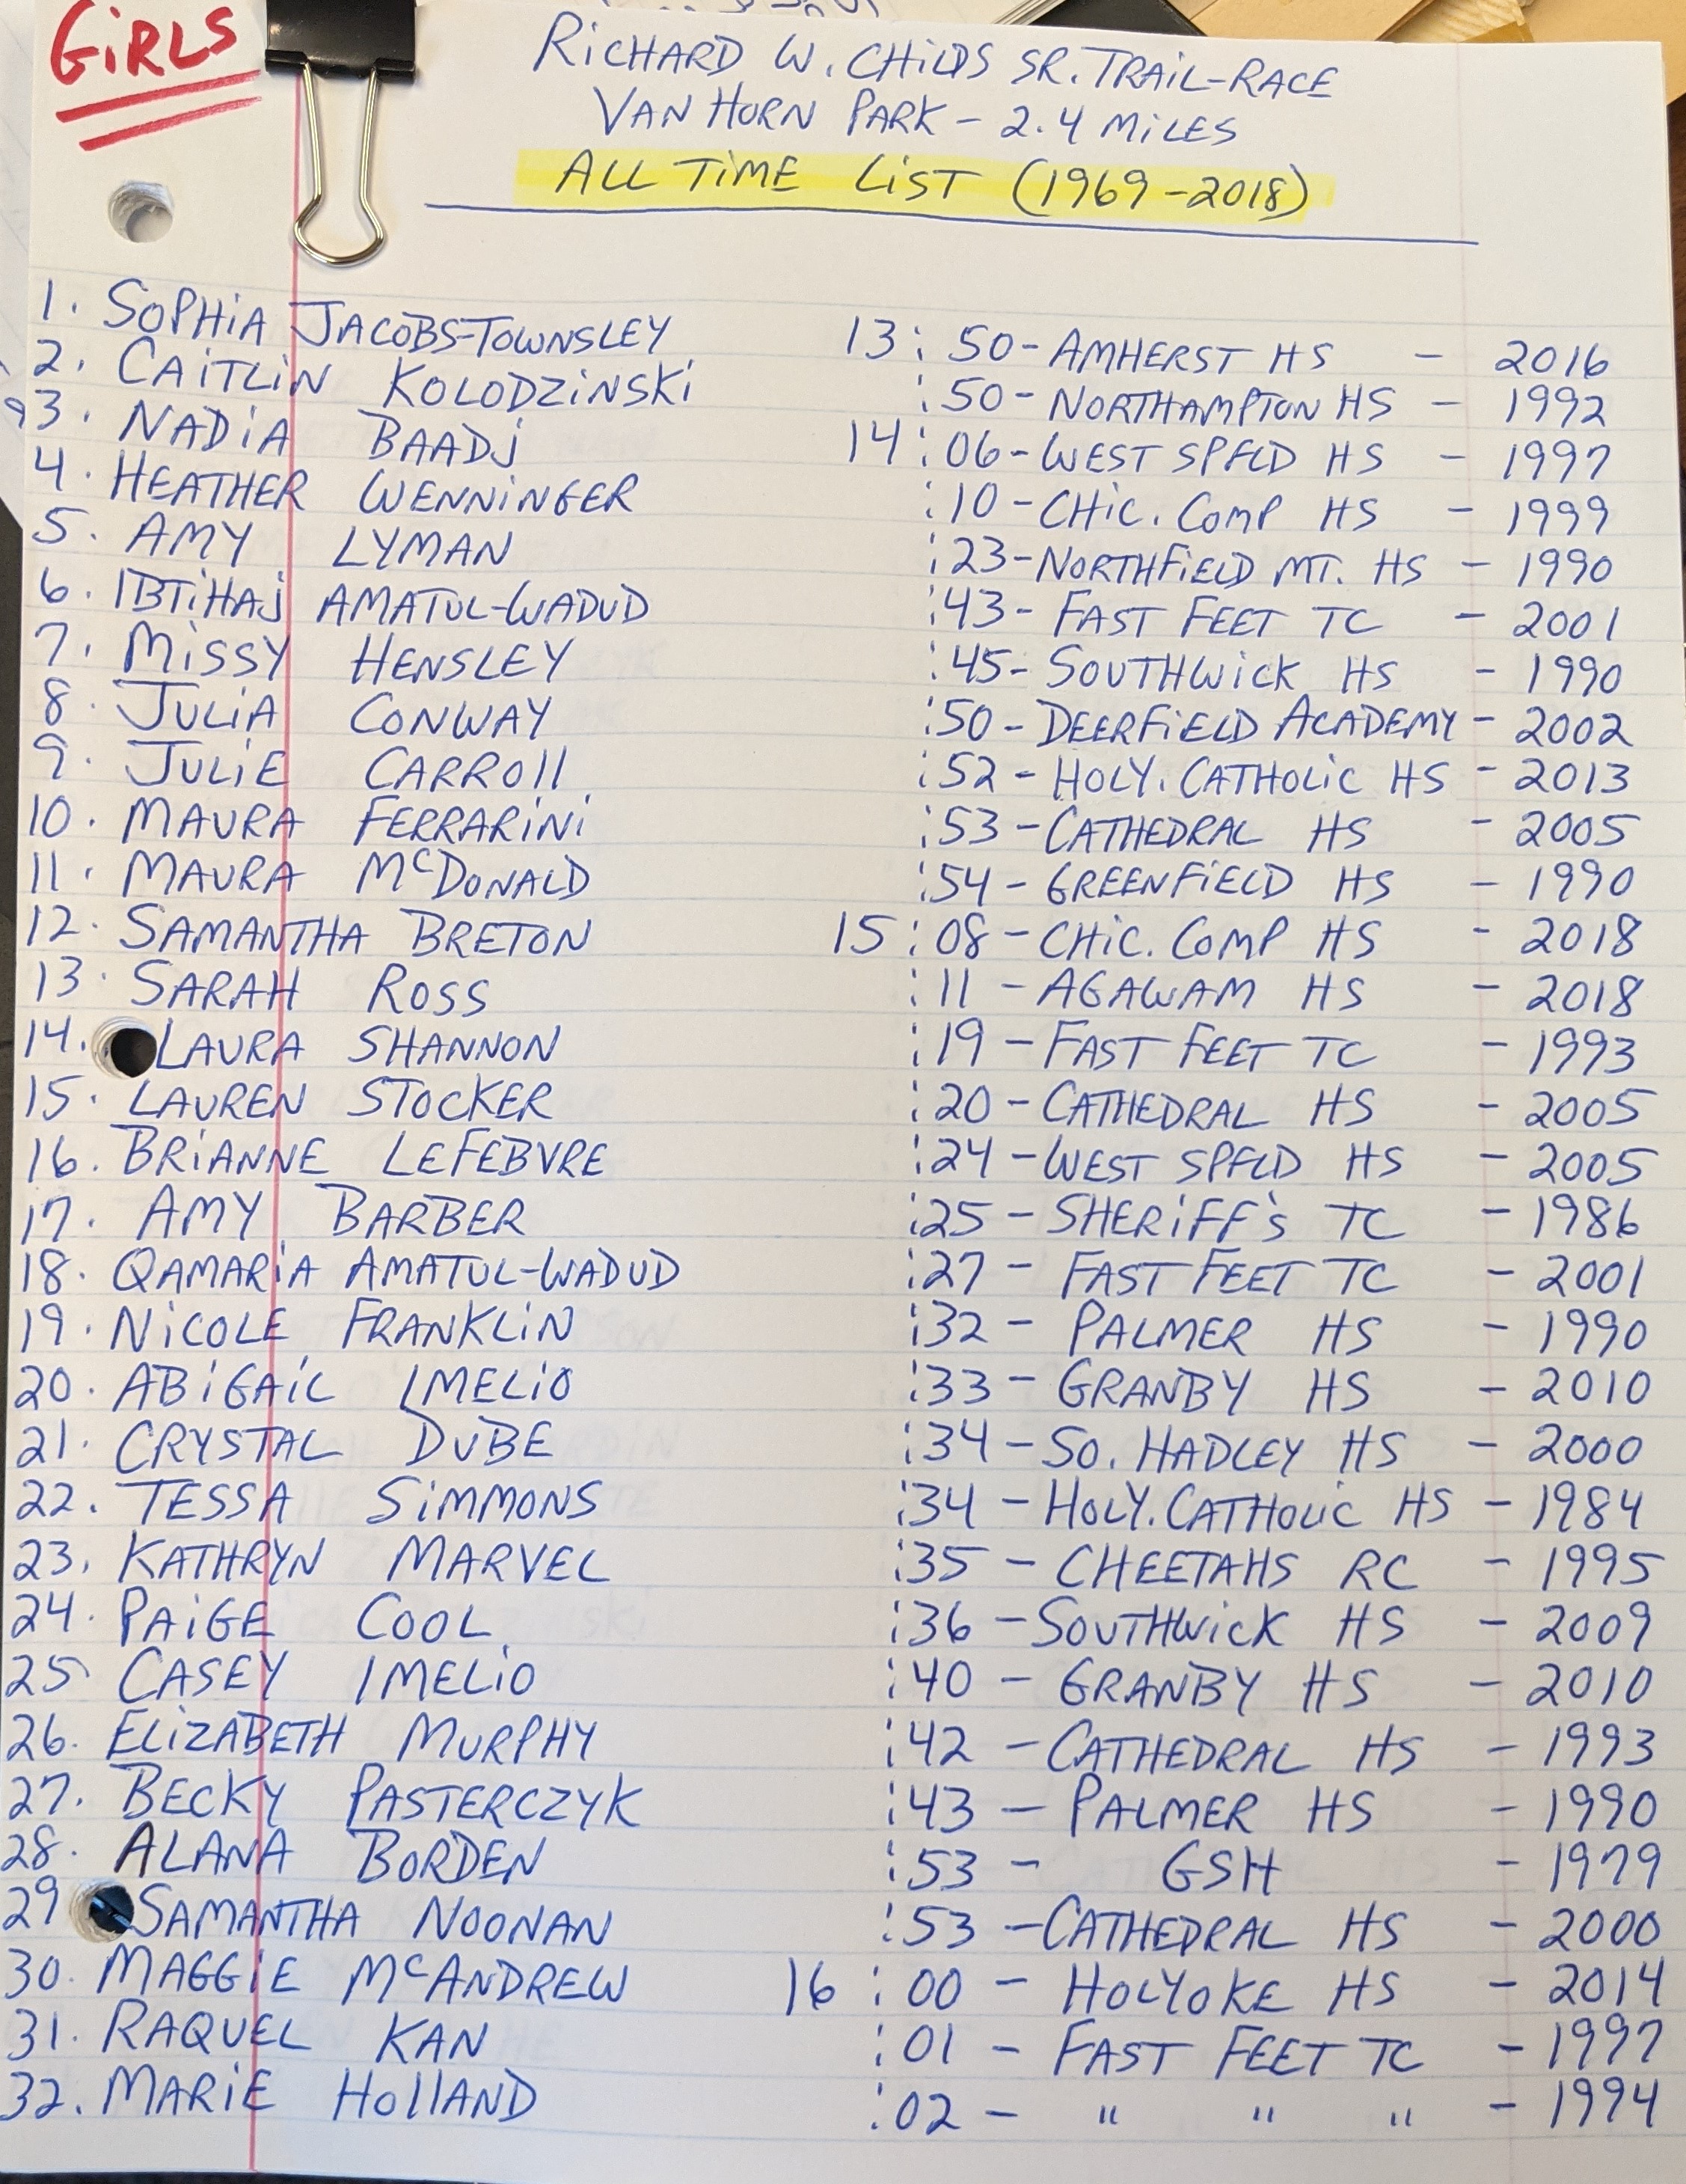 GIRLS
RICHARD W. CHILDS SR. TRAIL-RACE
VAN HORN PARK - 2.4 MILES
ALL TIME LIST (1969-2018)
1. SOPHIA JACOBS-TOWNSLEY 13:50 - AMHERST HS - 2016
2. CAITLIN KOLODZINSKI :50 - NORTHAMPTON HS - 1992
3. NADIA BAADJ 14:06 - WEST SPFLD HS - 1997
4. HEATHER WENNINGER :10 - CHIC. COMP HS - 1999
5. AMY LYMAN :23 - NORTHFIELD MT. HS - 1990
6. IBTIHAJ AMATUL-WADUD :43 - FAST FEET TC - 2001
7. MISSY HENSLEY :45 - SOUTHWICK HS - 1990
8. JULIA CONWAY :50 - DEERFIELD ACADEMY - 2002
9. JULIE CARROLL :52 - HOLY. CATHOLIC HS - 2013
10. MAURA FERRARINI :53 - CATHEDRAL HS - 2005
11. MAURA McDONALD :54 - GREENFIELD HS - 1990
12. SAMANTHA BRETON 15:08 - CHIC. COMP HS - 2018
13. SARAH ROSS :11 - AGAWAM HS - 2018
14. LAURA SHANNON :19 - FAST FEET TC - 1993
15. LAUREN STOCKER :20 - CATHEDRAL HS - 2005
16. BRIANNE LEFEBVRE :24 - WEST SPFLD HS - 2005
17. AMY BARBER :25 - SHERIFF'S TC - 1986
18. QAMARIA AMATUL-WADUD :27 - FAST FEET TC - 2001
19. NICOLE FRANKLIN :32 - PALMER HS - 1990
20. ABIGAIL IMELIO :33 - GRANBY HS - 2010
21. CRYSTAL DUBE :34 - SO. HADLEY HS - 2000
22. TESSA SIMMONS :34 - HOLY. CATHOLIC HS - 1984
23. KATHRYN MARVEL :35 - CHEETAHS RC - 1995
24. PAIGE COOL :36 - SOUTHWICK HS - 2009
25 CASEY IMELIO :40 - GRANBY HS - 2010
26. ELIZABETH MURPHY :42 - CATHEDRAL HS - 1993
27. BECKY PASTERCZYK :43 - PALMER HS - 1990
28. ALANA BORDEN :53 - GSH - 1979
29 SAMANTHA NOONAN :53 - CATHEDRAL HS - 2000
30. MAGGIE McANDREW 16:00 - HOLYOKE HS - 2014
31. RAQUEL KAN :01 - FAST FEET TC - 1997
32. MARIE HOLLAND :02 - " " " - 1994